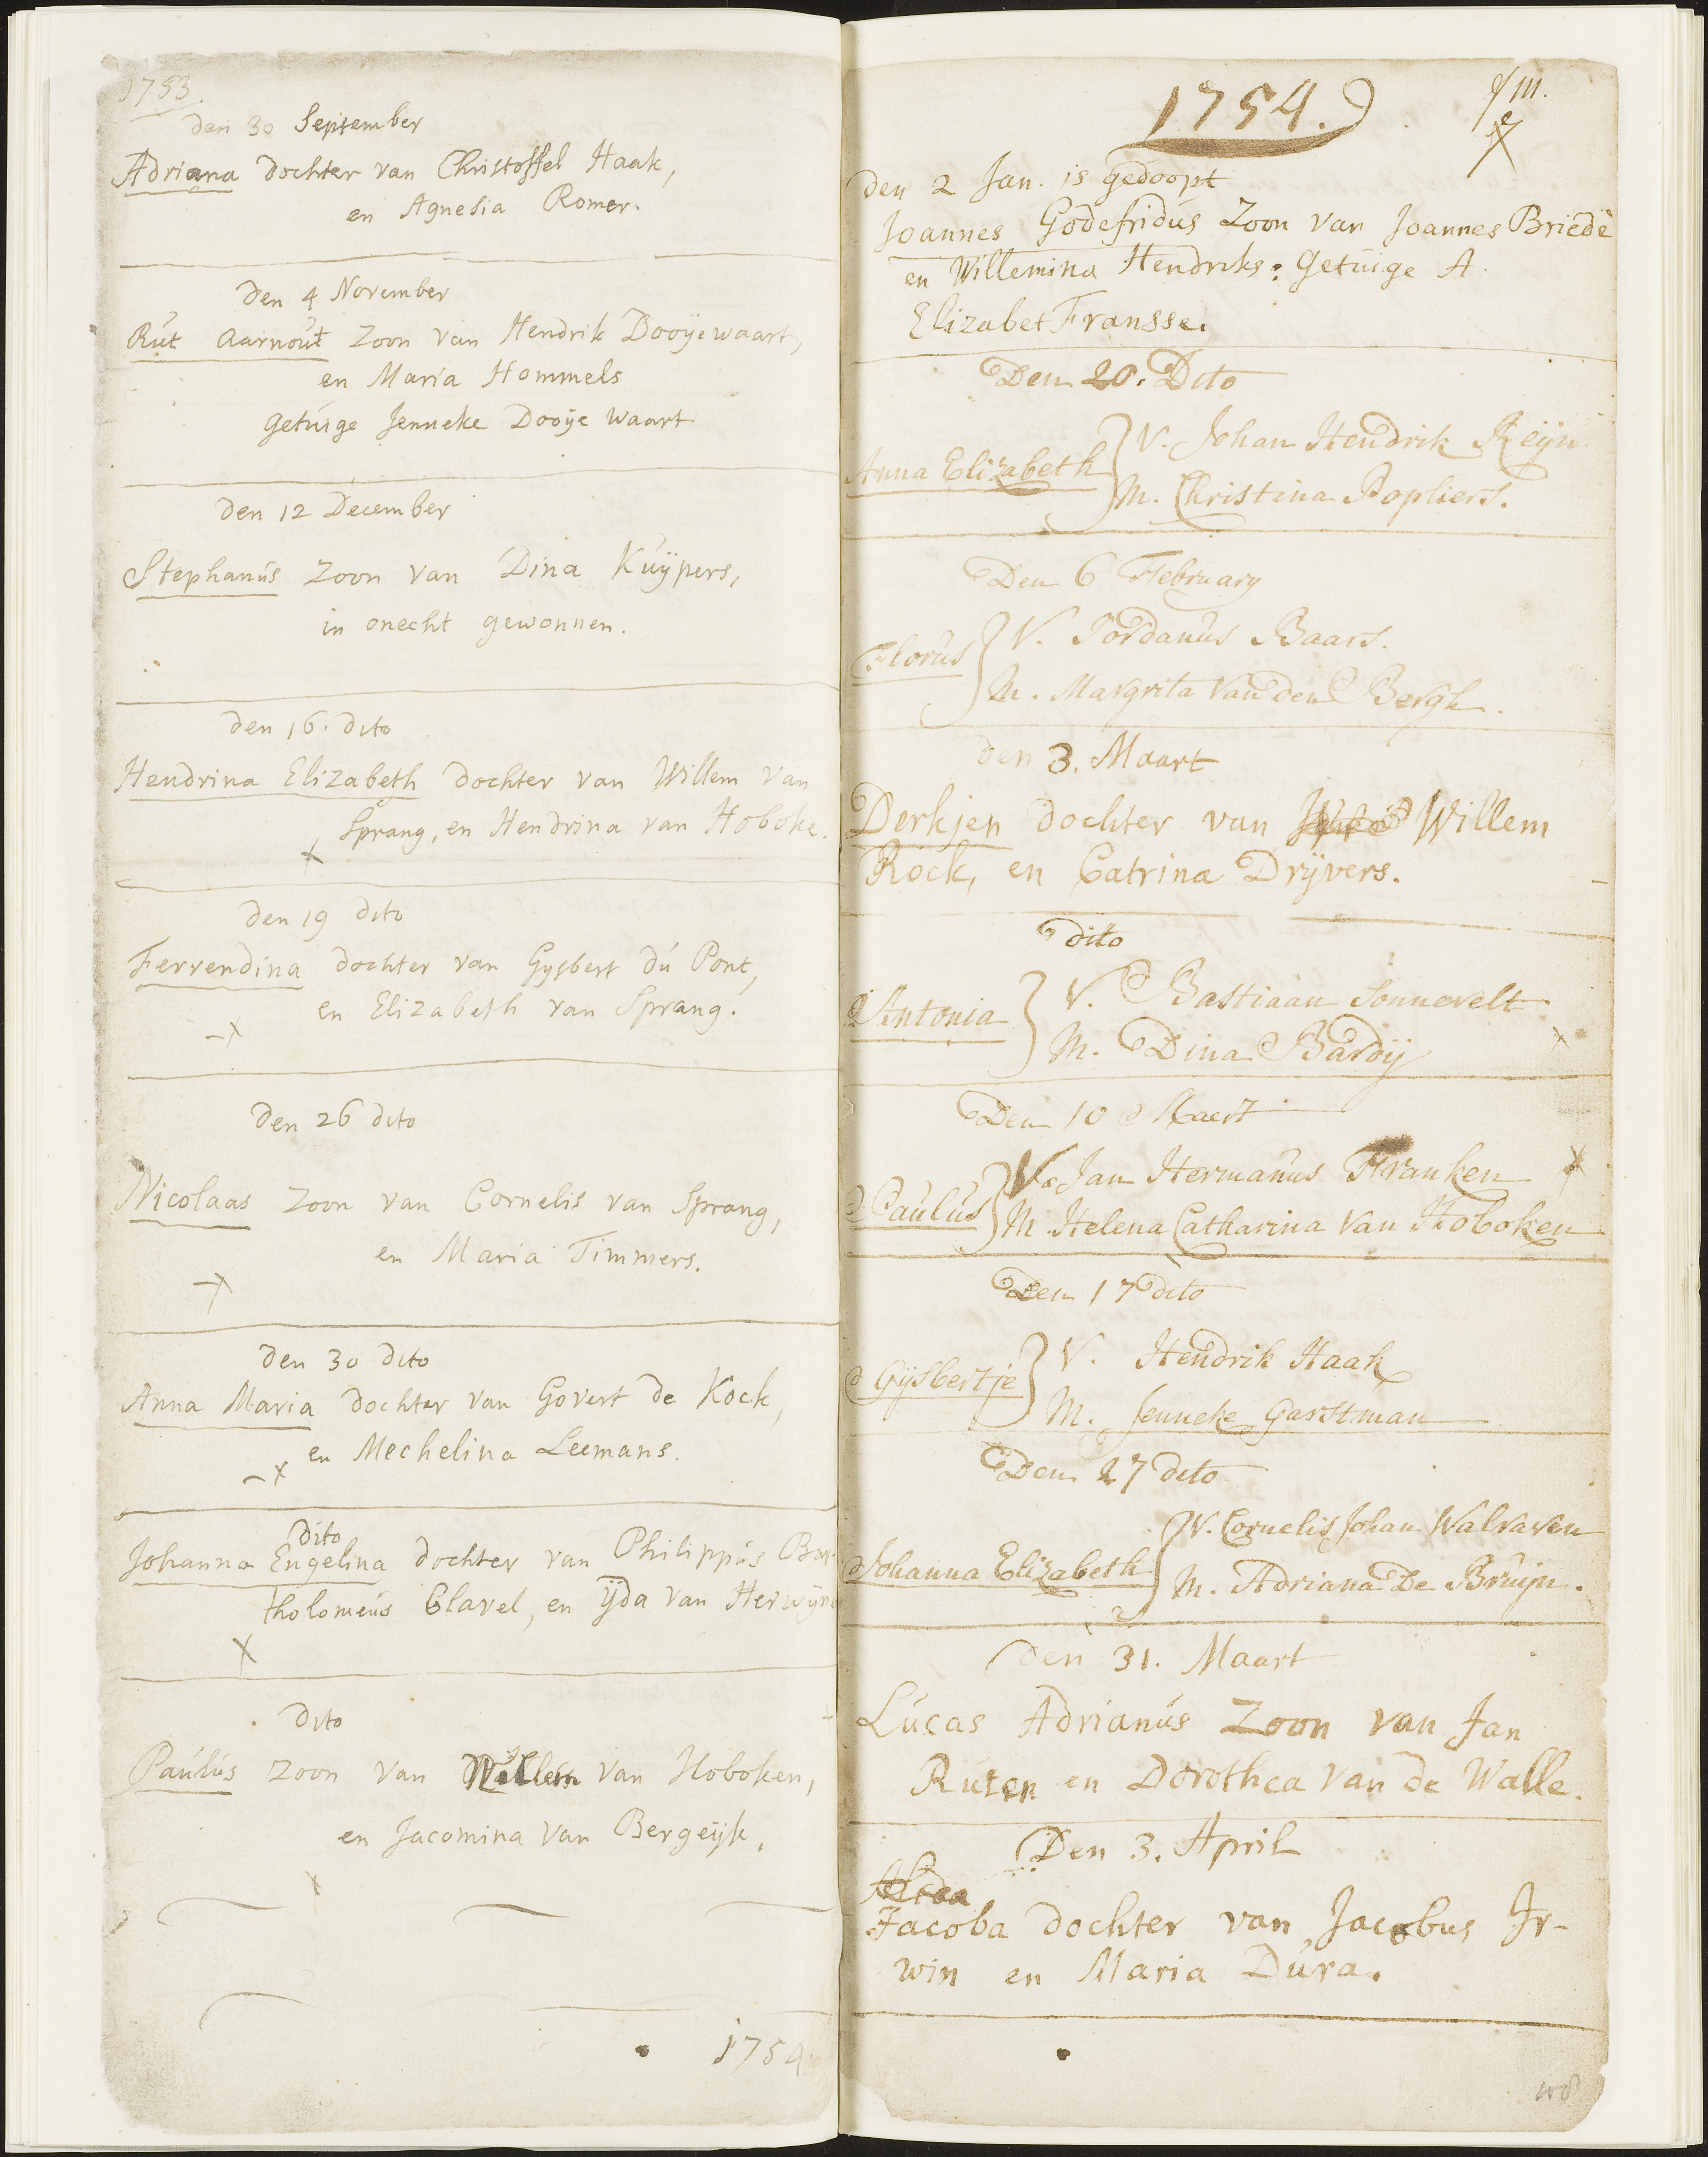 1753.
den 30 September
Adriana dochter van Christoffel Haak,
en Agnesia Romer.
den 4 November
Rut Aarnout Zoon van Hendrik Dooijewaart,
en Maria Hommels
getuige Jenneke Dooije waart
den 12 December
Stephanus Zoon van Dina Kuijpers,
in onecht gewonnen.
den 16. dito
Hendrina Elizabeth dochter van Willem van
Sprang, en Hendrina van Hoboke.
den 19 dito
Ferrendina dochter van Gysbert du Pont,
en Elizabeth van Sprang.
den 26 dito
Nicolaas Zoon van Cornelis van Sprang,
en Maria Timmers.
den 30 dito
Anna Maria dochter van Govert de Kock,
en Mechelina Leemans.
dito
Johanna Engelina dochter van Philippus Bar-
tholomeus Clavel, en Yda van Herwijn
dito
Paulus Zoon van Willem van Hoboken,
en Jacomina van Bergeijk.
1754
1754.
den 2 Jan. is gedoopt
Joannes Godefridus Zoon van Joannes Briedé
en Willemina Hendriks: Getuige A.
Elizabet Fransse.
Den 20. Dito
Anna Elizabeth
V. Johan Hendrik Reijn
M. Christina Popliers.
Den 6 February
Florus
V. Jordanus Baars.
M. Margrita Van den Bergh.
den 3. Maart
Derkjen dochter van Willem
Rock, en Catrina Drijvers.
dito
Antonia
V. Bastiaan Sonnevelt
M. Dina Bardij
Den 10 Maert
Paulus
V. Jan Hermanus Franken
M. Helena Catharina Van Hoboken
Den 17 dito
Gijsbertje
V. Hendrik Haak
M. Jenneke Garstman
Den 27 dito
Johanna Elizabeth
V. Cornelis Johan Walraven
M. Adriana De Bruijn.
den 31. Maart
Lucas Adrianus Zoon van Jan
Ruten en Dorothea van de Walle.
Den 3. April
Jacoba dochter van Jacobus Ir-
win en Maria Dura.